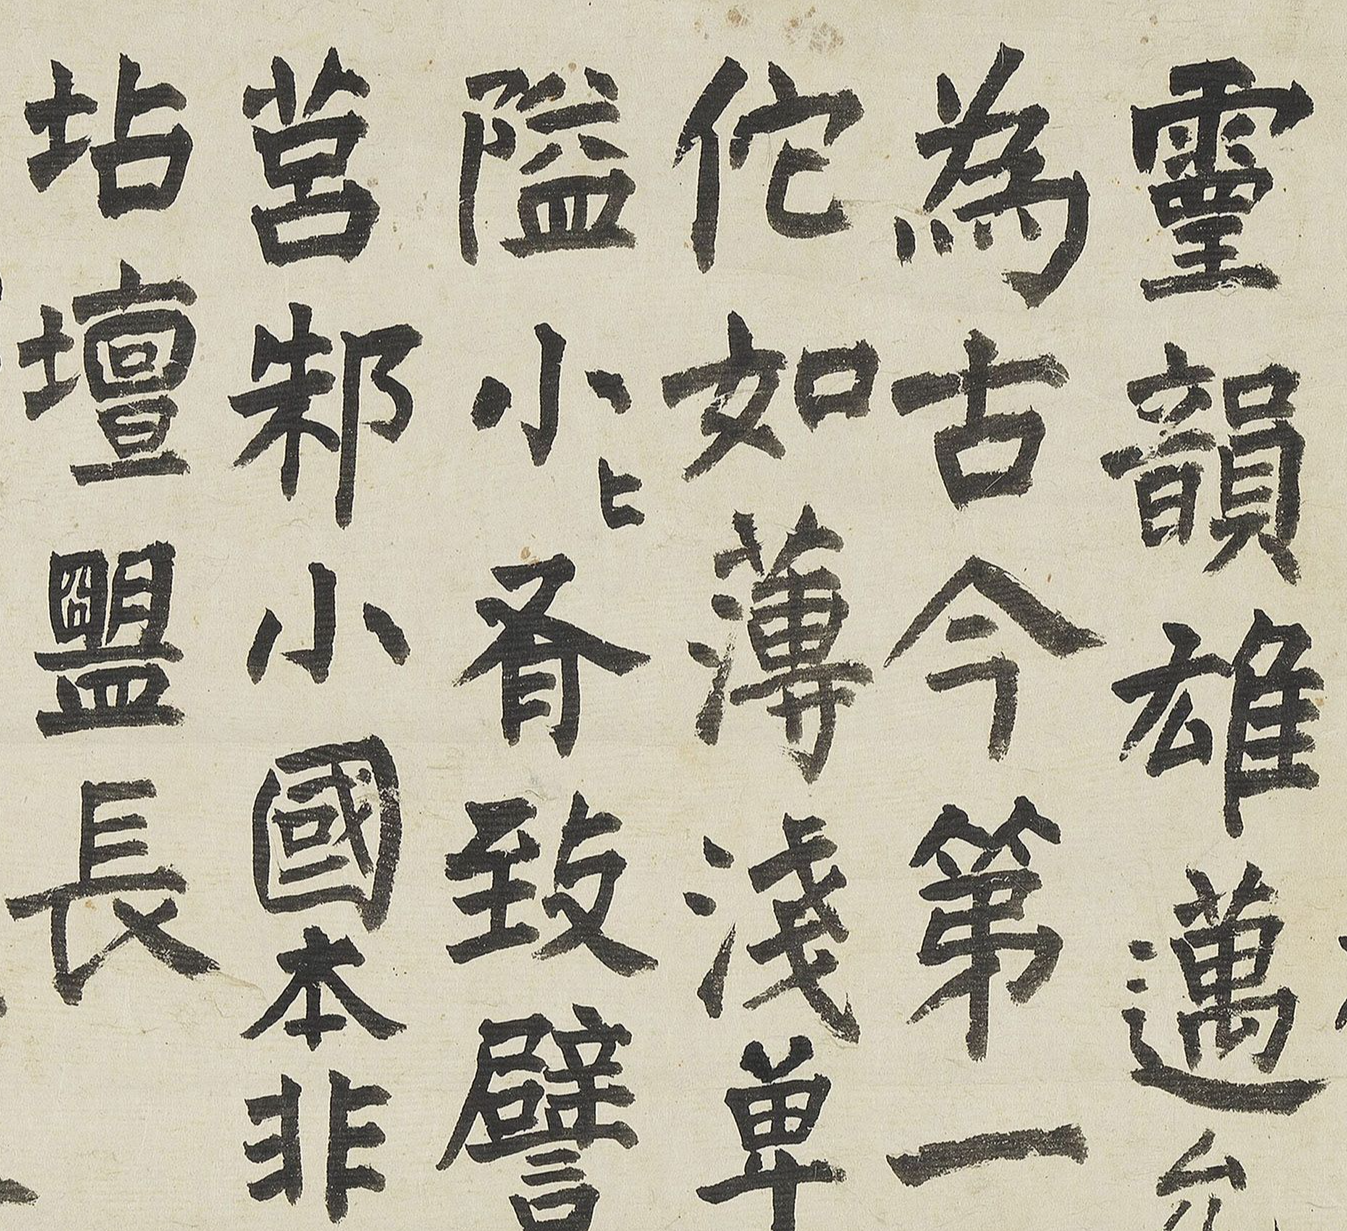 靈韻雄邁允
為古今第一
佗如薄淺單
隘小〻者致譬
莒邾小國本非
坫壇盟長